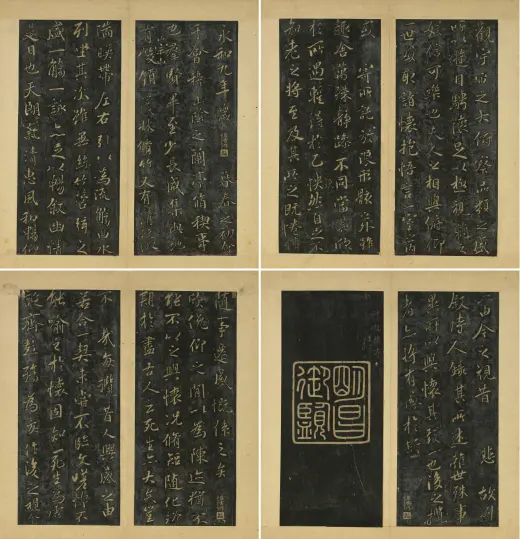 永和九年歲暮春之初會
于會稽山陰之蘭亭脩稧事
也羣賢畢至少長咸集此地
有崇山峻領茂林脩竹又有清流激
湍暎帶左右引以為流觴曲水
列坐其次雖無絲竹管弦之
盛一觴一詠亦足以暢敘幽情
是日也天朗氣清惠風和暢仰
觀宇宙之大俯察品類之盛
所以遊目騁懷足以極視聽之
娛信可樂也夫人之相與俯仰
一世或取諸懷抱悟言一室之內
或寄所託放浪形骸之外雖
趣舍萬殊靜躁不同當其欣
於所遇暫得於己快然自足不
知老之將至及其所之既惓情
隨事遷感慨係之矣
欣俛仰之閒以為陳迹猶不
能不以之興懷況脩短隨化終
期於盡古人云死生亦大矣豈
不哉每攬昔人興感之由
若合一契未嘗不臨文嗟悼不
能喻之於懷固知一死生為虛
誕齊彭殤為妄作後之視今
亦由今之視昔悲故列
敘時人錄其所述雖世殊事
異所以興懷其致一也後之攬
者亦將有感於斯
明昌御覽